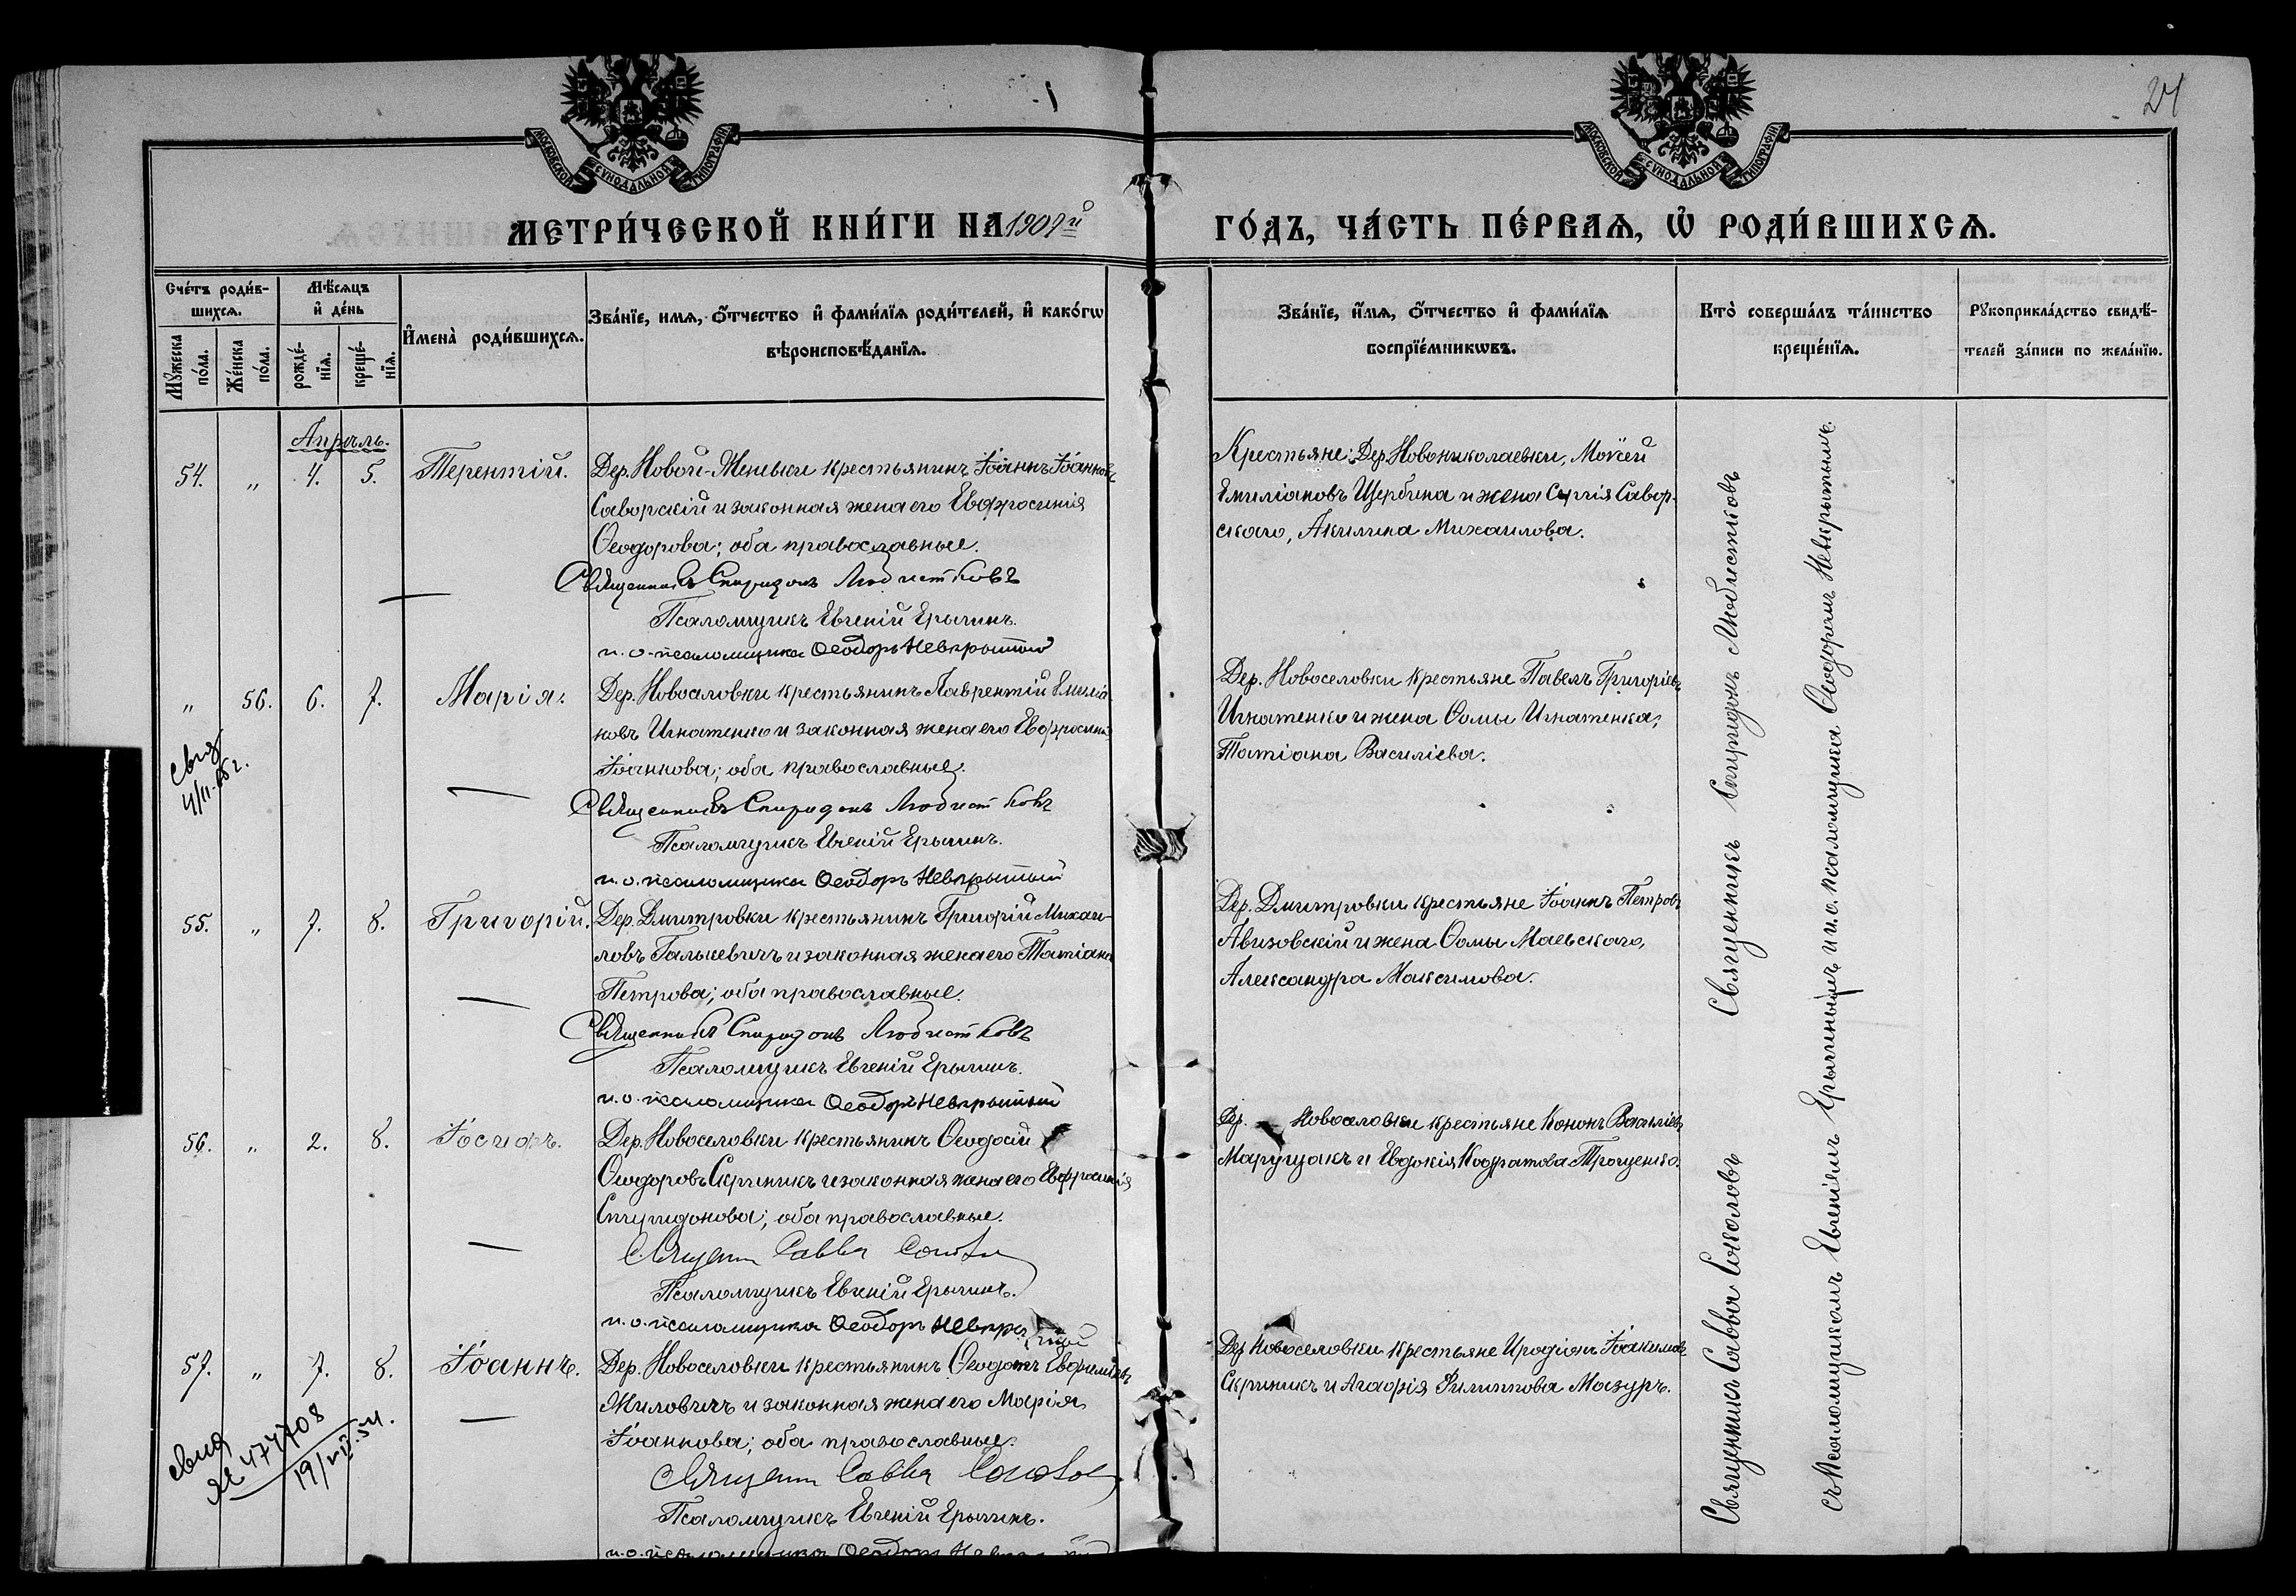 24
МОСКОВСКОЙ СУНОДАЛЬНОЙ ТИПОГРАФІИ
МОСКОВСКОЙ СУНОДАЛЬНОЙ ТИПОГРАФІИ
МЕТРИ́ЧЕСКОЙ КНИ́ГИ НА 1909й ГО́ДЪ, ЧА́СТЬ ПЕ́РВАѦ, Ѡ҆ РОДИ́ВШИХСѦ.
Сче́тъ роди́в-
шихсѧ.
Мꙋ́жеска по́ла.
Же́нска по́ла.
Мѣ́сѧцъ
и҆ де́нь
рожде́-
нїѧ.
креще́-
нїѧ.
И҆мена̀ роди́вшихсѧ.
Зва́нїе, имѧ, ѻ҆́тчество и҆ фами́лїѧ роди́телей, и҆ како́гѡ
вѣроисповѣ́данїѧ.
Зва́нїе, и҆́мѧ, ѻ҆́тчество и҆ фами́лїѧ
воспрїе́мникѡвъ.
Кто̀ соверша́лъ та́инство
креще́нїѧ.
Рꙋкоприкла́дство свидѣ́-
телей за́писи по жела́нїю.
Апрѣль.
54. „ 4. 5. Терентій. Дер. Новой-Женевки крестьянинъ Іоаннъ Іоанновъ
Саворскій и законная жена его Евфросинія
Ѳеодорова; оба православные.
Священникъ Спиридонъ Любистковъ
Псаломщикъ Евгеній Ерылинъ.
и. о. псаломщика Ѳеодоръ Невкрытый
Крестьяне: Дер. Новониколаевки, Моѵсей
Емиліановъ Щербина и жена Сергія Савор-
скаго, Акилина Михаилова.
„ 56. 6. 7. Марія. Дер. Новоселовки крестьянинъ Лаврентій Емиліа-
новъ Игнатенко и законная жена его Евфросинія
Іоаннова; оба православные.
Священникъ Спиридонъ Любистковъ
Псаломщикъ Евгеній Ерылинъ.
и. о. псаломщика Ѳеодоръ Невкрытый
Дер. Новоселовки крестьяне Павелъ Григоріевъ
Игнатенко и жена Ѳомы Игнатенка,
Татіана Василіева.
55. „ 7. 8. Григорій. Дер. Дмитровки крестьянинъ Григорій Михаи-
ловъ Галькевичъ и законная жена его Татіана
Петрова; оба православные.
Священникъ Спиридонъ Любистковъ
Псаломщикъ Евгеній Ерылинъ.
и. о. псаломщика Ѳеодоръ Невкрытый
Дер. Дмитровки крестьяне Іоаннъ Петровъ
Авизовскій и жена Ѳомы Маевскаго,
Александра Максимова.
56. „ 2. 8. Іосифъ. Дер. Новоселовки крестьянинъ Ѳеодосій
Ѳеодоровъ Скрипникъ и законная жена его Евфросинія
Спиридонова; оба православные.
Священ Савва Соколов
Псаломщикъ Евгеній Ерылинъ.
и. о. псаломщика Ѳеодоръ Невкрытый
Дер. Новоселовки крестьяне Кононъ Василіевъ
Марущакъ и Евдокія Кодратова Троценко.
57. „ 7. 8. Іоаннъ. Дер. Новоселовки крестьянинъ Ѳеодотъ Евфиміевъ
Жиловичъ и законная жена его Марія
Іоаннова; оба православные.
Священ Савва Соколов
Псаломщикъ Евгеній Ерылинъ.
и. о. псаломщика Ѳеодоръ
Дер Новоселовки крестьяне Иродіонъ Іоакимовъ
Скрипникъ и Агафія Филиппова Мазуръ.
Священникъ Спиридонъ Любистковъ
Священникъ Савва Соколовъ
съ Псаломщикомъ Евгеніемъ Ерылинымъ и и. о. псаломщика Ѳеодоромъ Невкрытымъ.
4/II-
№ 474708
19/VII-54.